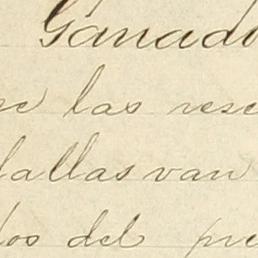 Ganado
las rese
fallas van
los del pre